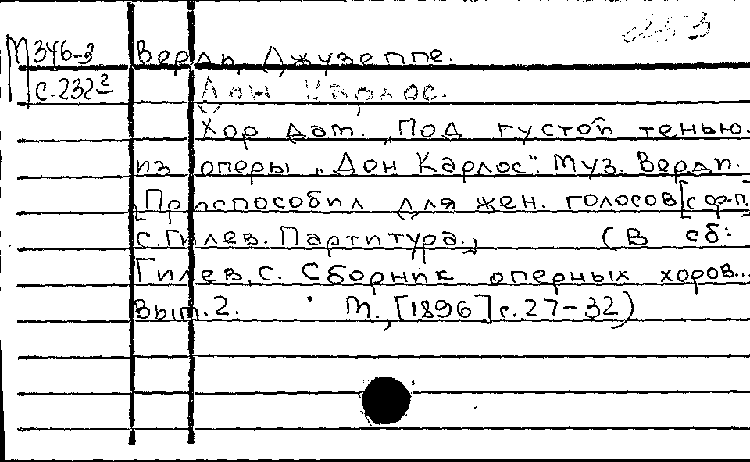 М346-3 Верди, Джузеппе.
с.232² Дон Карлос.
Хор дам. „Под густой тенью.
из оперы „Дон Карлос". Муз. Верди.
[Приспособил для жен. голосов [с ф-п]
С. Гилев. Партитура., (В сб:
Гилев, С. Сборник оперных хоров...
Вып. 2. М., [1896] с. 27-32)